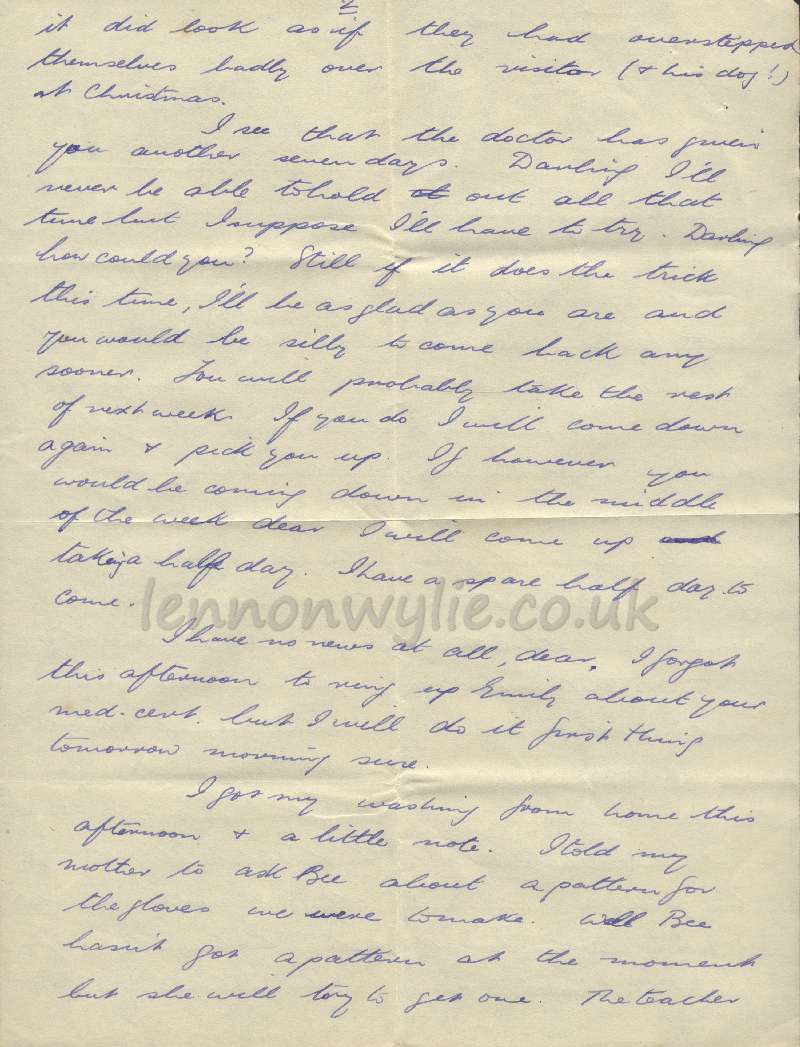 2
it did look as if they had overstepped
themselves badly over the visitor (& his dog!)
at Christmas.
I see that the doctor has given
you another seven days. Darling I'll
never be able to hold out all that
time but I suppose I'll have to try. Darling
how could you? Still if it does the trick
this time, I'll be as glad as you are and
you would be silly to come back any
sooner. You will probably take the rest
of next week. If you do I will come down
again & pick you up. If however you
would be coming down in the middle
of the week dear I will come up
taking a half day. I have a spare half day to
come.
lennonwylie.co.uk
I have no news at all, dear. I forgot
this afternoon to ring up Emily about your
med. cert. but I will do it first thing
tomorrow morning sure.
I got my washing from home this
afternoon & a little note. I told my
mother to ask Bee about a pattern for
the gloves we were to make. Well Bee
hasn't got a pattern at the moment
but she will try to get one. The teacher